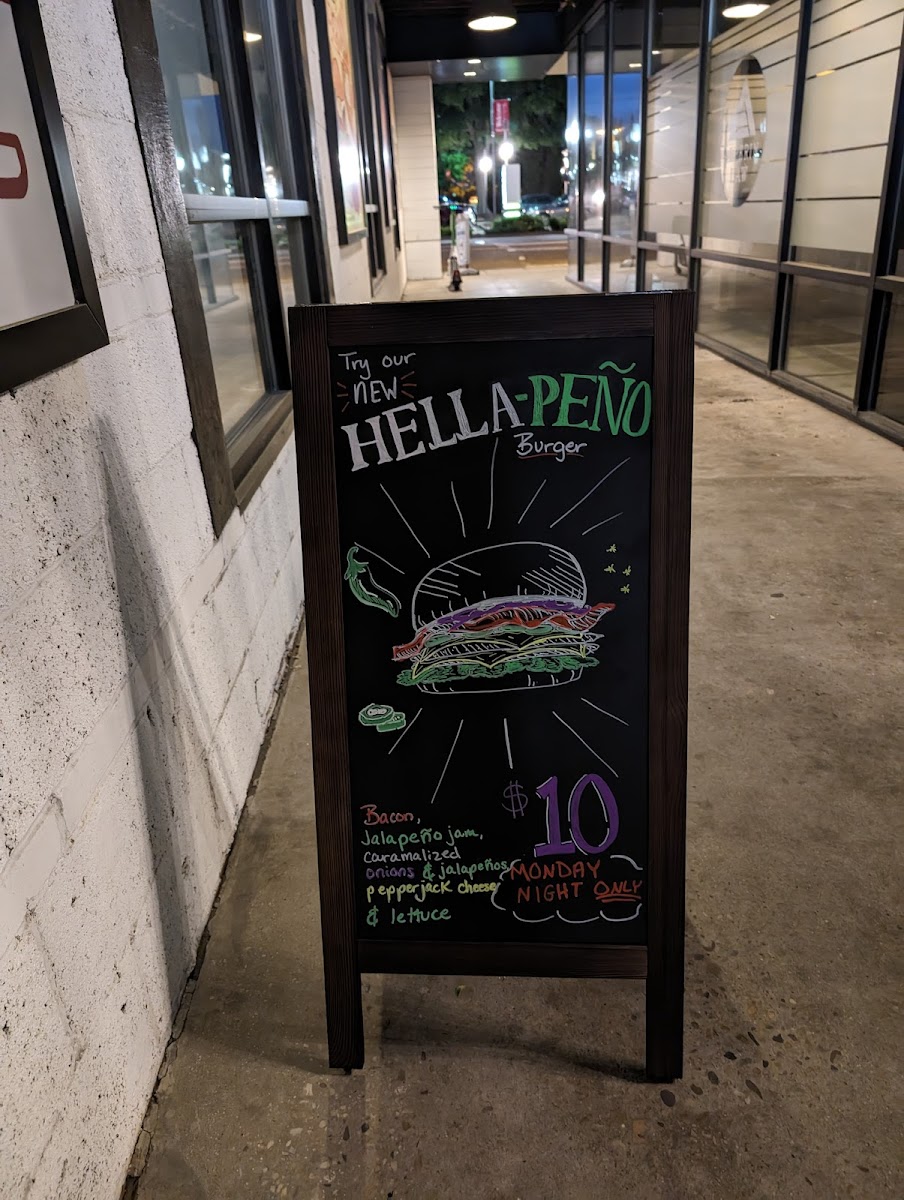 Try our
NEW
HELLA-PEÑO
Burger
$10
Bacon,
Jalapeño jam,
caramalized
onions & jalapeños
pepperjack cheese
& lettuce
MONDAY
NIGHT ONLY